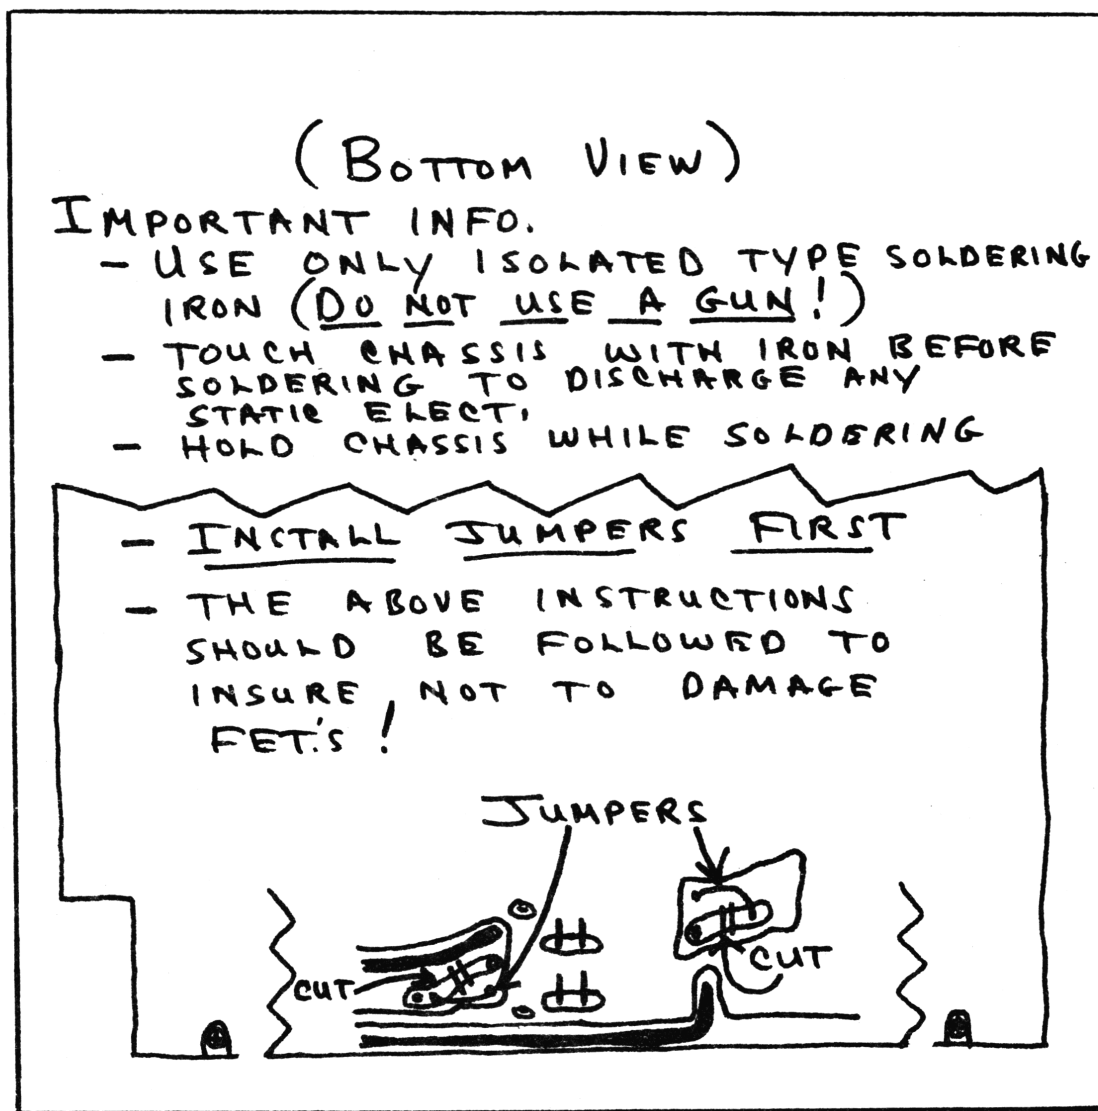 (BOTTOM VIEW)
IMPORTANT INFO.
- USE ONLY ISOLATED TYPE SOLDERING
IRON (DO NOT USE A GUN!)
- TOUCH CHASSIS WITH IRON BEFORE
SOLDERING TO DISCHARGE ANY
STATIC ELECT.
- HOLD CHASSIS WHILE SOLDERING
- INSTALL JUMPERS FIRST
- THE ABOVE INSTRUCTIONS
SHOULD BE FOLLOWED TO
INSURE, NOT TO DAMAGE
FET.'S!
JUMPERS
CUT
CUT